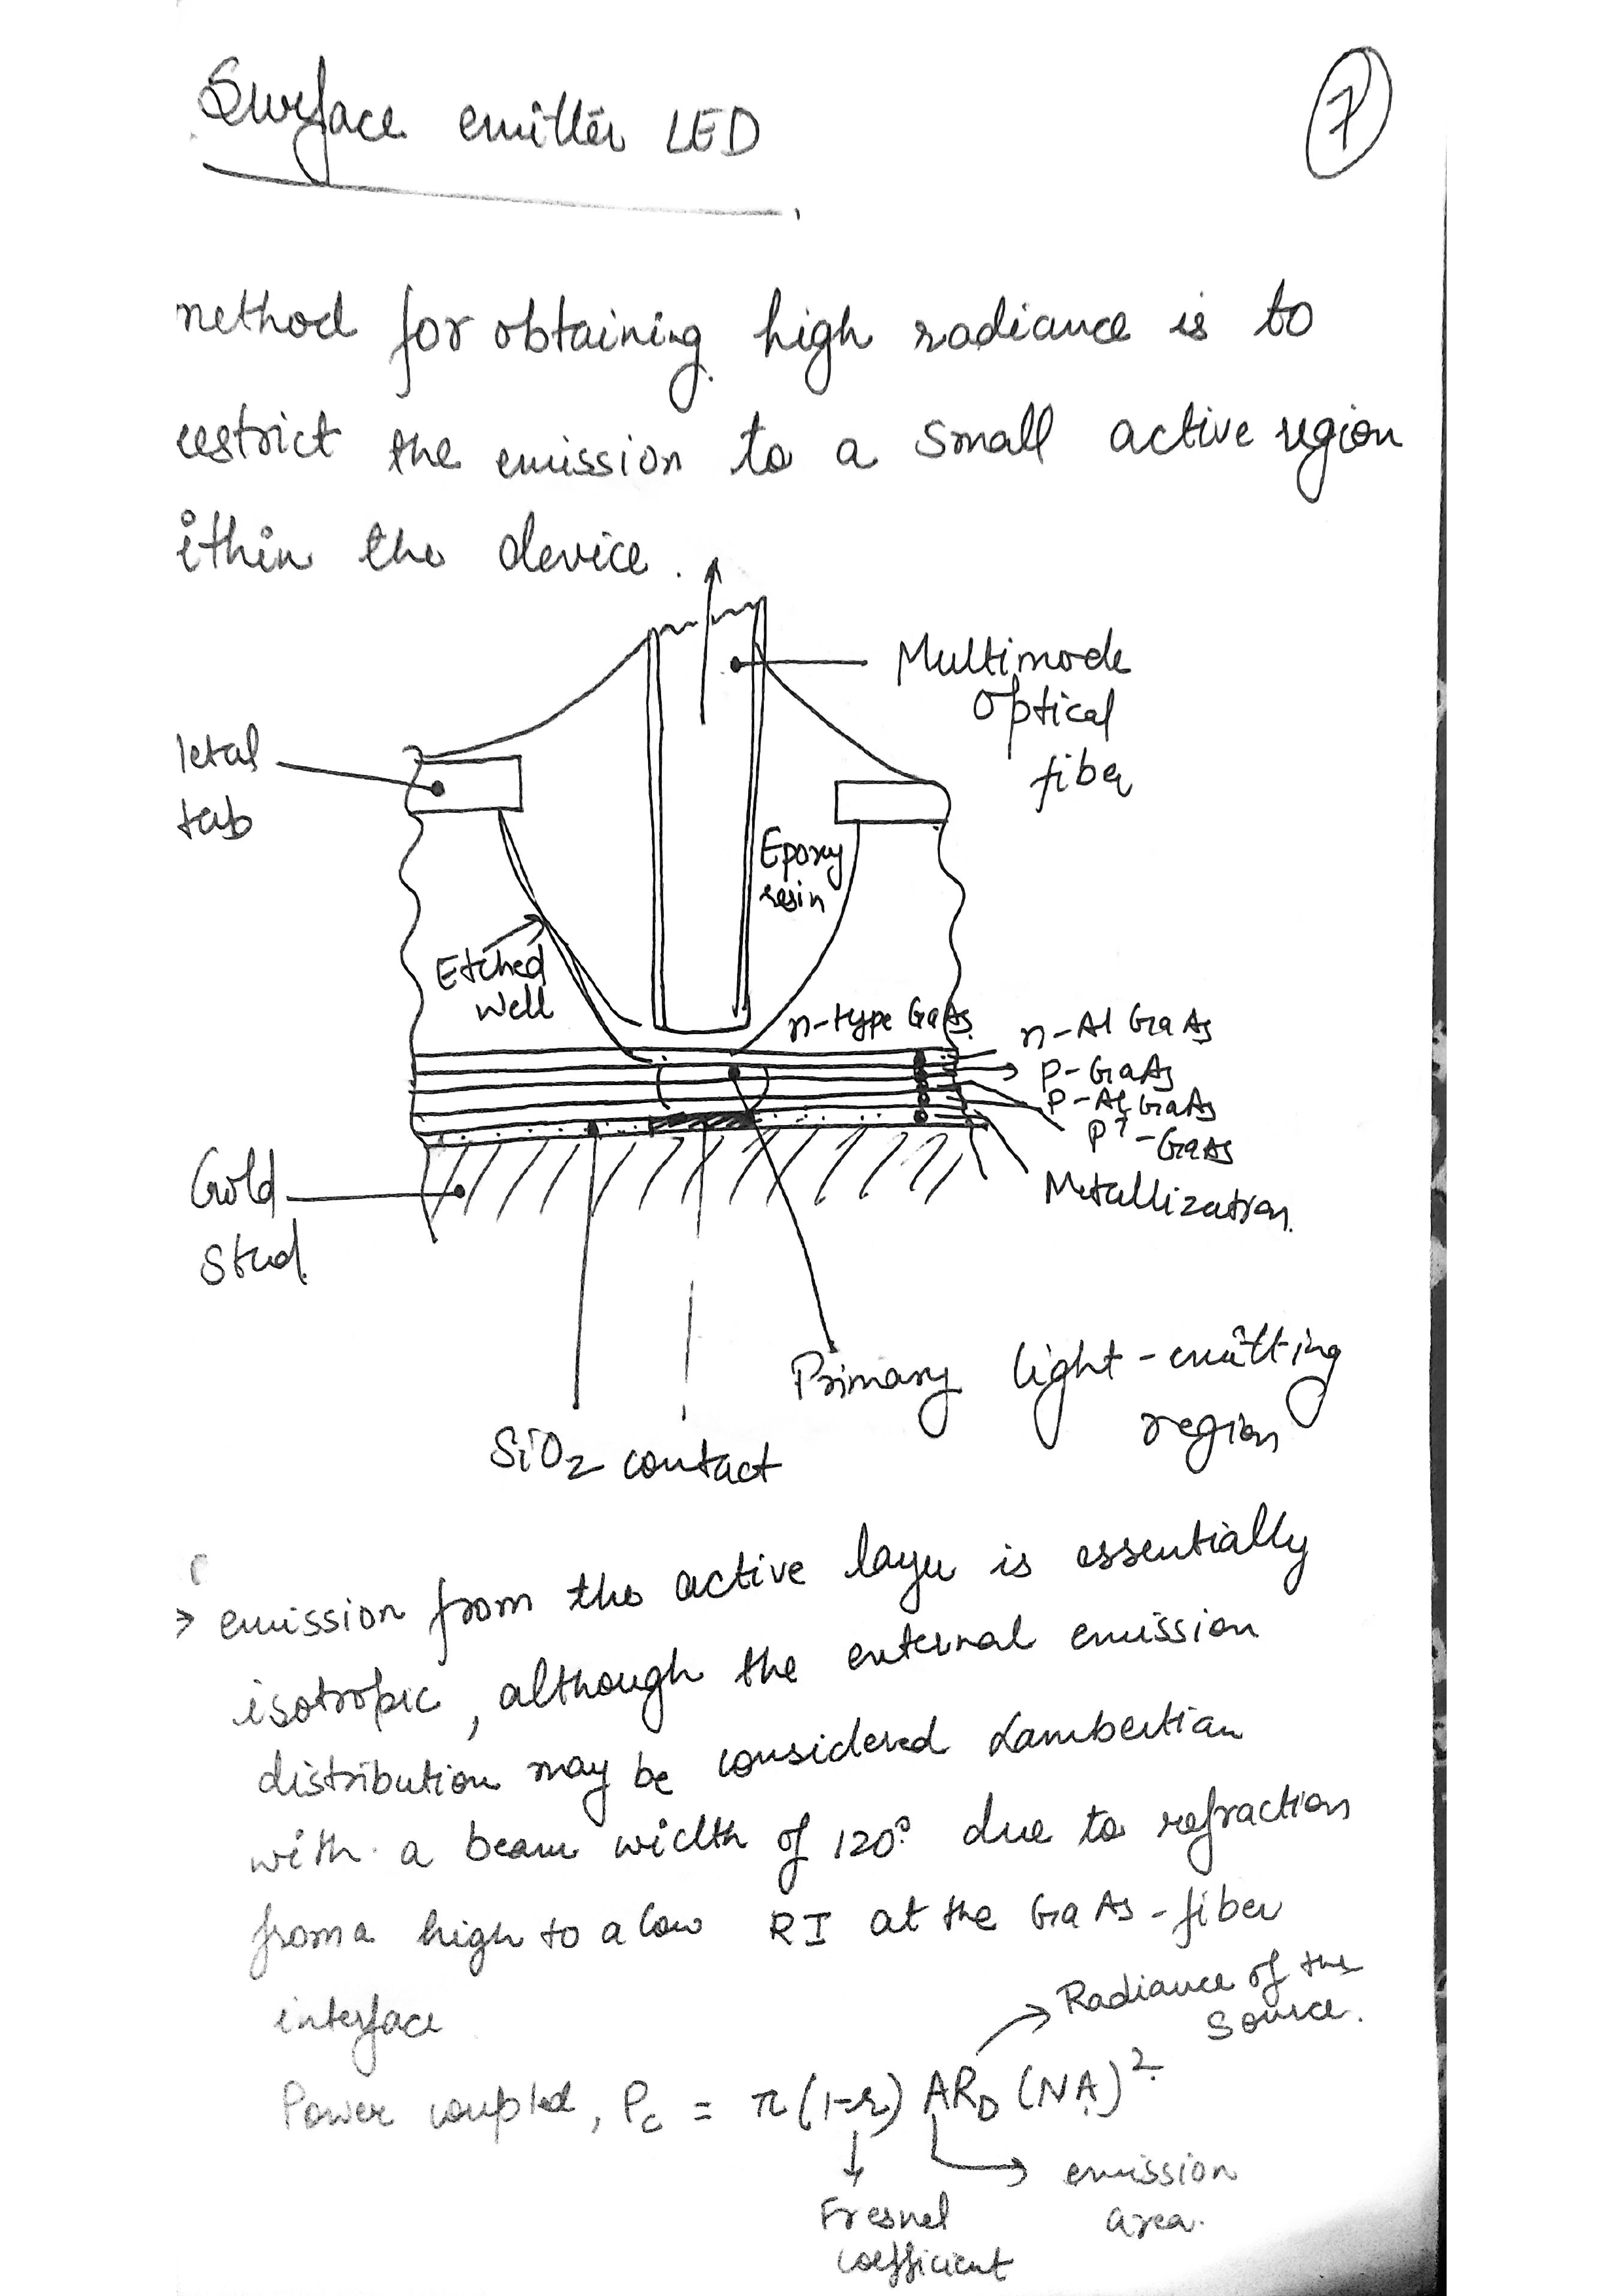 Surface emitter LED
7
nethod for obtaining high radiance is to
restrict the emission to a small active region
ithin the device.
Multimode
Optical
fiber
letal
tab
Epoxy
resin
Etched
Well
n-type GaAs
n-Al GaAs
p-GaAs
p-Al GaAs
p+-GaAs
Metallization.
Gold
Stud.
Primary light-emitting
region
SiO2 contact
→ emission from the active layer is essentially
isotropic, although the external emission
distribution may be considered Lambertian
with a beam width of 120° due to refraction
from a high to a low RI at the GaAs-fiber
interface
Radiance of the
Source.
Power coupled, Pc = π(1-r) ARD (NA)²
emission
area.
Fresnel
coefficient